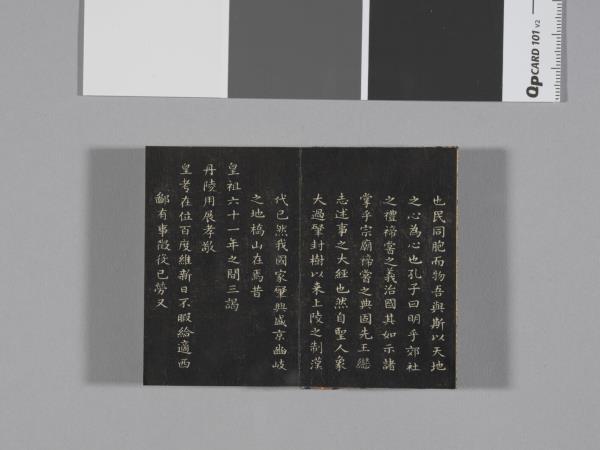 QpCARD 101 v2
也民同胞而物吾與斯以天地
之心為心也孔子曰明乎郊社
之禮禘嘗之義治國其如示諸
掌乎宗廟禘嘗之典固先王繼
志述事之大經也然自聖人象
大過肇封樹以來上陵之制漢
代已然我國家肇興盛京豳岐
之地橋山在焉昔
皇祖六十一年之間三謁
丹陵用展孝敬
皇考在位百度維新日不暇給適西
鄙有事徵役已勞又